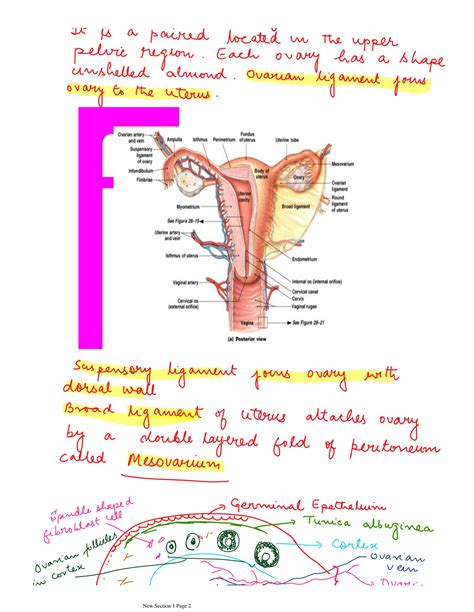 It is a paired located in the upper
pelvic region. Each ovary has a shape
unshelled almond. Ovarian ligament joins
ovary to the uterus.
Ovarian artery and vein
Suspensory ligament of ovary
Infundibulum
Fimbriae
Ampulla
Isthmus
Perimetrium
Fundus of uterus
Uterine tube
Body of uterus
Ovary
Mesovarium
Ovarian ligament
Round ligament of uterus
Uterine cavity
Broad ligament
Myometrium
See Figure 28–19
Uterine artery and vein
Isthmus of uterus
Endometrium
Vaginal artery
Internal os (internal orifice)
Cervical canal
Cervix
Vaginal rugae
Cervical os (external orifice)
Vagina
See Figure 28–21
(a) Posterior view
Suspensory ligament joins ovary with
dorsal wall
Broad ligament of uterus attaches ovary
by a double layered fold of peritoneum
called Mesovarium
Spindle shaped
fibroblast cell
Germinal Epethelium
Tunica albuginea
Cortex
Ovarian follicles
in cortex
Ovarian
vein
New Section 1 Page 2